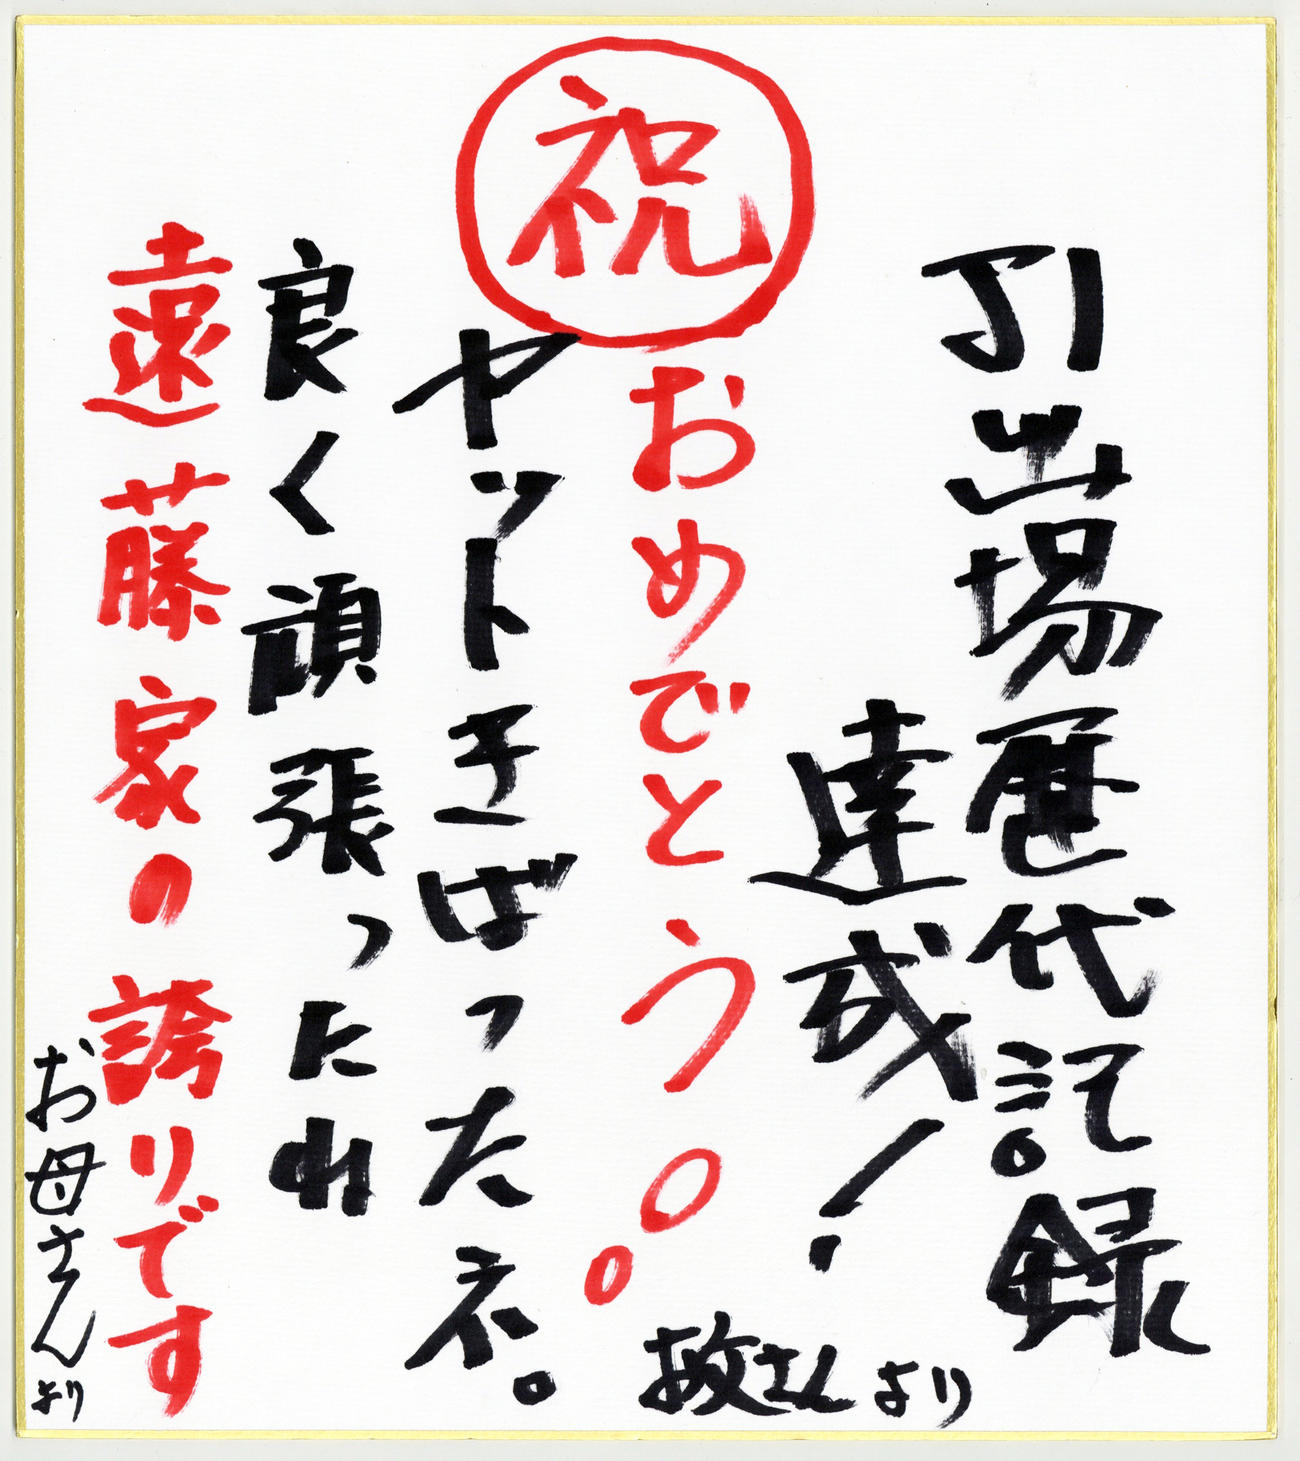 J1出場歴代記録
達成!
祝
おめでとう。。
お父さんより
ヤットきばったネ。
良く頑張ったね
遠藤家の誇りです
お母さんより